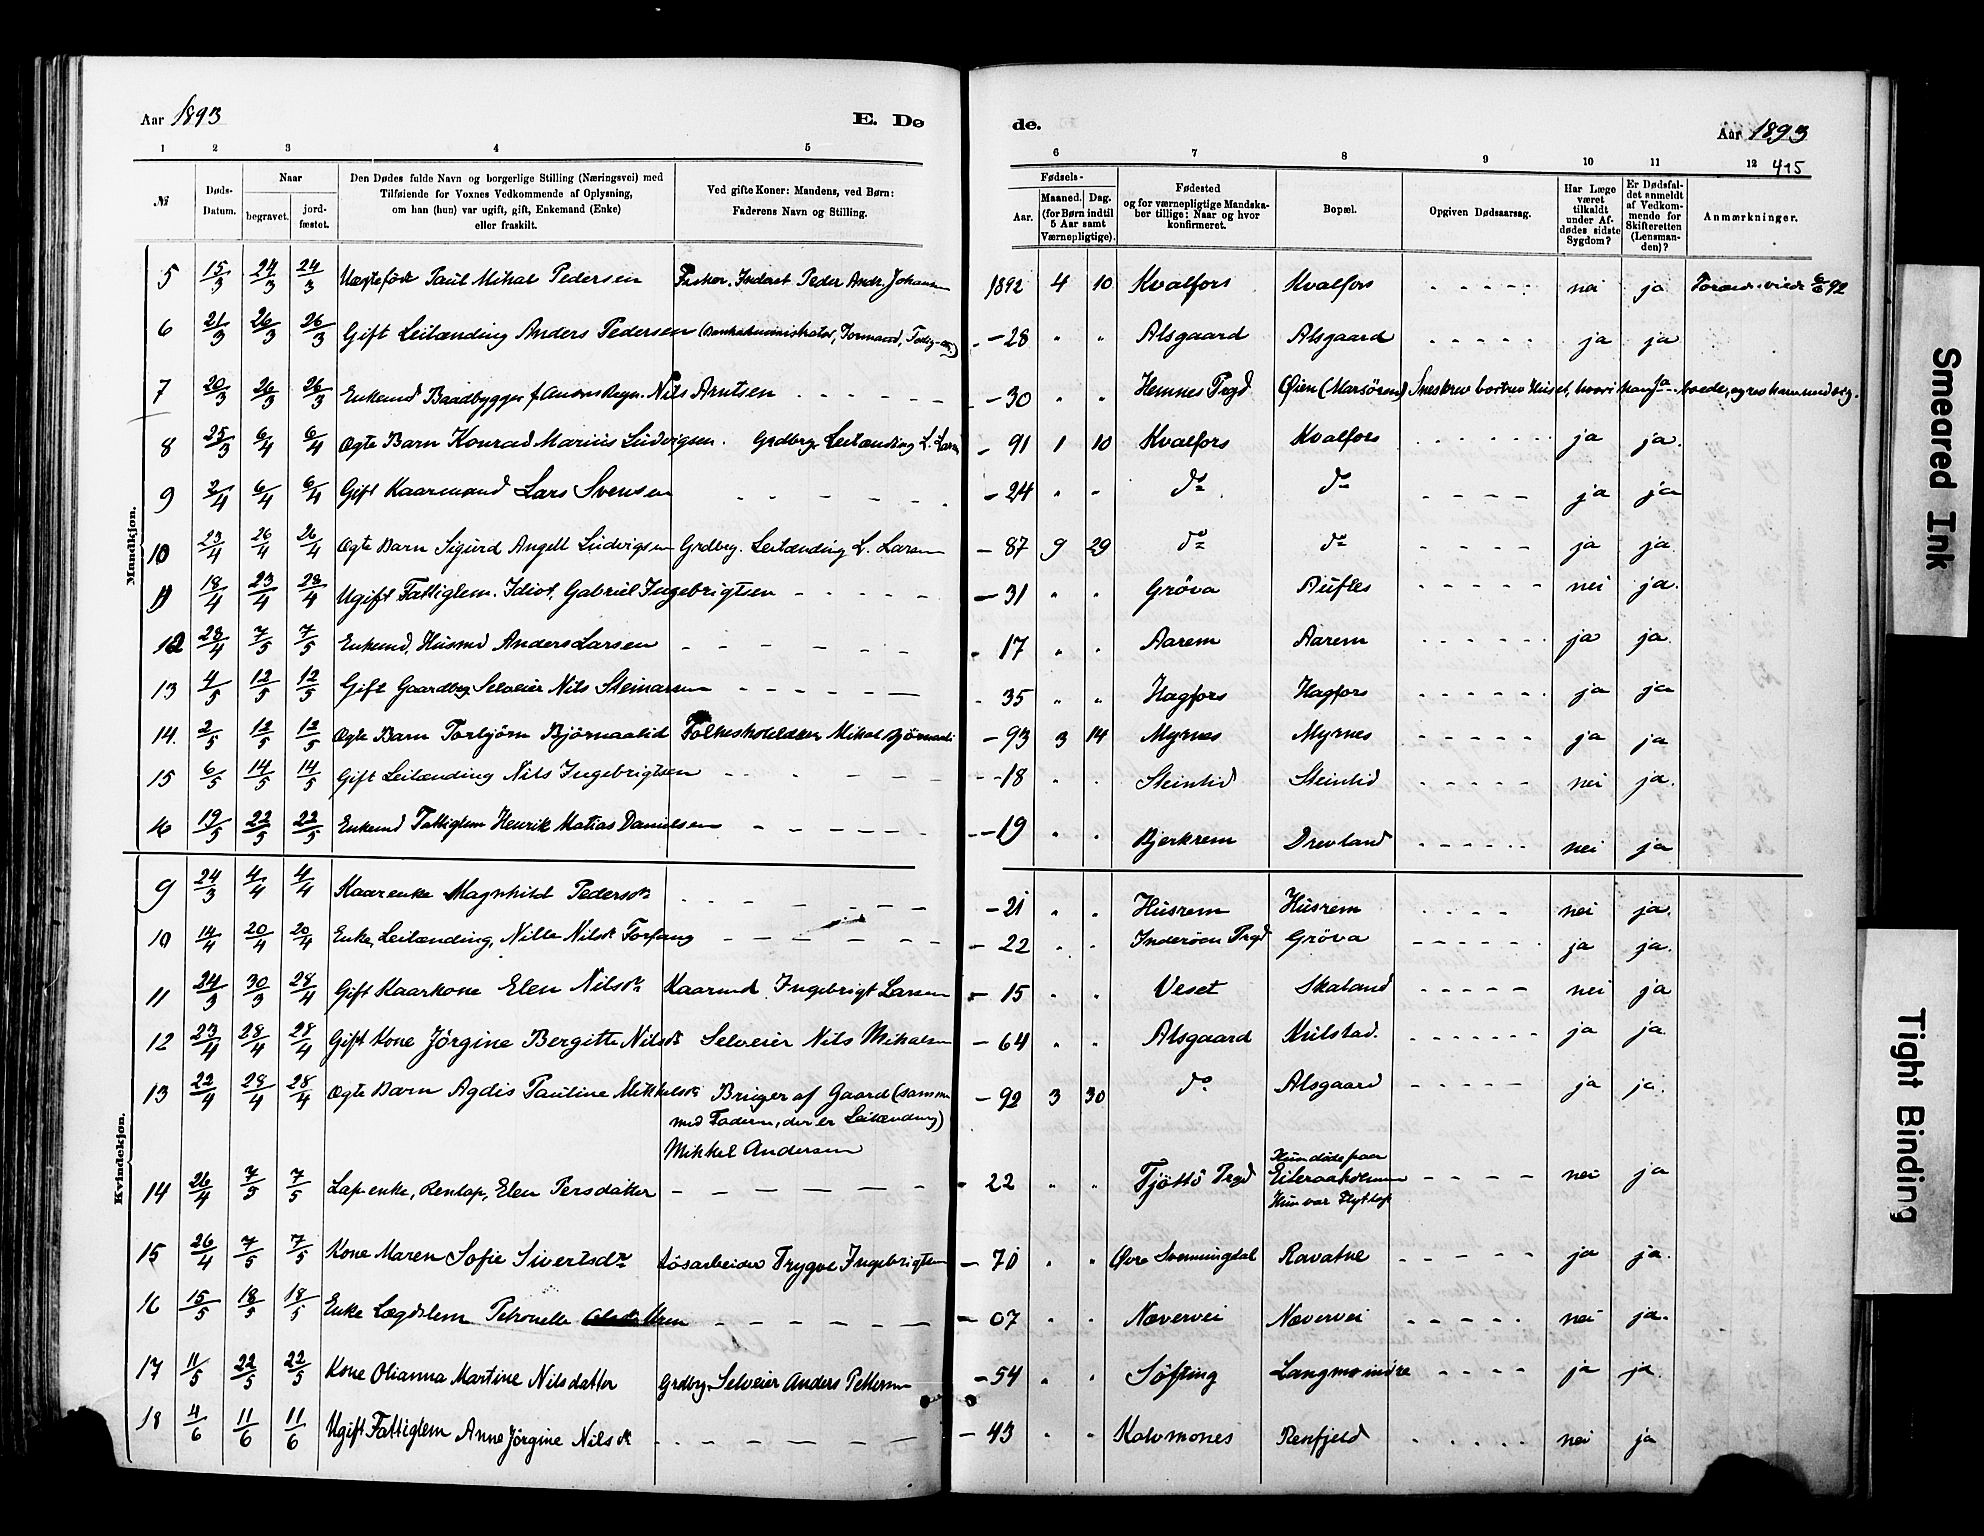 Aar 1893
E. Dø
de.
Aar 1893
415
1 2 3 4 5 6 7 8 9 10 11 12
№
Døds-Datum.
Naar
begravet.
jord-fæstet.
Den Dødes fulde Navn og borgerlige Stilling (Næringsvei) med
Tilføiende for Voxnes Vedkommende af Oplysning,
om han (hun) var ugift, gift, Enkemand (Enke)
eller fraskilt.
Ved gifte Koner: Mandens, ved Børn:
Faderens Navn og Stilling.
Fødsels-
Aar.
Maaned. Dag.
(for Børn indtil
5 Aar samt
Værnepligtige).
Fødested
og for værnepligtige Mandska-
ber tillige: Naar og hvor
konfirmeret.
Bopæl.
Opgiven Dødsaarsag.
Har Læge
været
tilkaldt
under Af-
dødes sidste
Sygdom?
Er Dødsfal-
det anmeldt
af Vedkom-
mende for
Skifteretten
(Lensman-
den)?
Anmærkninger.
Mandkjøn.
5 15/3 24/3 24/3 Uægtefødt Paul Mikal Pedersen Peder Andr. Johansen 1892 4 10 Kvalfors Kvalfors nei ja
6 21/3 26/3 26/3 Gift Leilænding Anders Pedersen - 28 " " Alsgaard Alsgaard ja ja
7 20/3 26/3 26/3 Enkemd Baadbygger Nils Arntsen - 30 " " Hemnes Prgd Øien ja
8 25/3 6/4 6/4 Ægte Barn Konrad Marius Ludvigsen. Grdbrg. Leilænding L. Larsen - 91 1 10 Kvalfors Kvalfors ja ja.
9 2/4 6/4 6/4 Gift Kaarmand Lars Svensen - 24 " " do do ja ja
10 23/4 26/4 26/4 Ægte Barn Sigurd Angell Ludvigsen Grdbrg. Leilænding L. Larsen - 87 9 29 do do ja ja
11 18/4 23/4 23/4 Ugift Fattiglem. Idiot, Gabriel Ingebrigtsen - 31 " " Gröva Aufles nei ja.
12 23/4 7/5 7/5 Enkemd. Husmd Anders Larsen - 17 " " Aarem Aarem ja ja.
13 4/5 12/5 12/5 Gift Gaardbrg Selveier Nils Steinarsen - 35 " " Hagfors Hagfors ja ja
14. 2/5 12/5 12/5 Ægte Barn Torbjörn Björnaalid Mikal Björnaali - 93 3 14 Myrnes Myrnes ja ja
15 6/5 14/5 14/5 Gift Leilænding Nils Ingebrigtsen - 18 " " Steinlid Steinlid nei ja.
16 19/5 22/5 22/5 Enkemd Fattiglem Henrik Matias Danielsen - 19 " " Bjerkrem Drevland nei ja
Kvindekjøn.
9 24/3 4/4 4/4 Kaarenke Magnhild Pedersdr - 21 " " Husrem Husrem nei ja.
10 14/4 20/4 20/4 Enke, Leilænding, Nille Nilsdr Forfang - 22 " " Inderöen Prgd Gröva ja ja.
11 24/3 30/3 28/4 Gift Kaarkone Elen Nilsdr Kaarmd Ingebrigt Larsen - 15 " " Veset Skaland nei ja
12 23/4 28/4 28/4 Gift Kone Jörgine Bergitte Nilsdr Selveier Nils Mikalsen - 64 " " Alsgaard Kulstad. ja ja.
13 22/4 28/4 28/4 Ægte Barn Agdis Pauline Mikkelsdr Bruger af Gaard (sammen
med Faderen, der er Leilænding)
Mikkel Andersen - 92 3 30 do Alsgaard ja ja.
14 26/4 7/5 7/5 Lap enke, Renlap, Elen Persdatter - 22 " " Tjöttö Prgd Hun döde paa
Hun var Flytlap nei ja
15 26/4 7/5 7/5 Kone Maren Sofie Sivertsdr Lösarbeider Trygve Ingebrigtsen - 70 " " Øvre Svenningdal Ravatne ja ja.
16 15/5 18/5 18/5 Enke Lægdslem Petronelle - 07 " " Nævervei Nævervei nei ja.
17 11/5 22/5 22/5 Kone Olianna Martine Nilsdatter Grdbrg. Selveier Anders Pettersen - 54 " " Söfting Langmo indre ja ja.
18 4/6 11/6 11/6 Ugift Fattiglem Anne Jörgine Nilsdr - 43 " " Kolvmones Renfjeld nei ja
Smeared Ink
Tight Binding